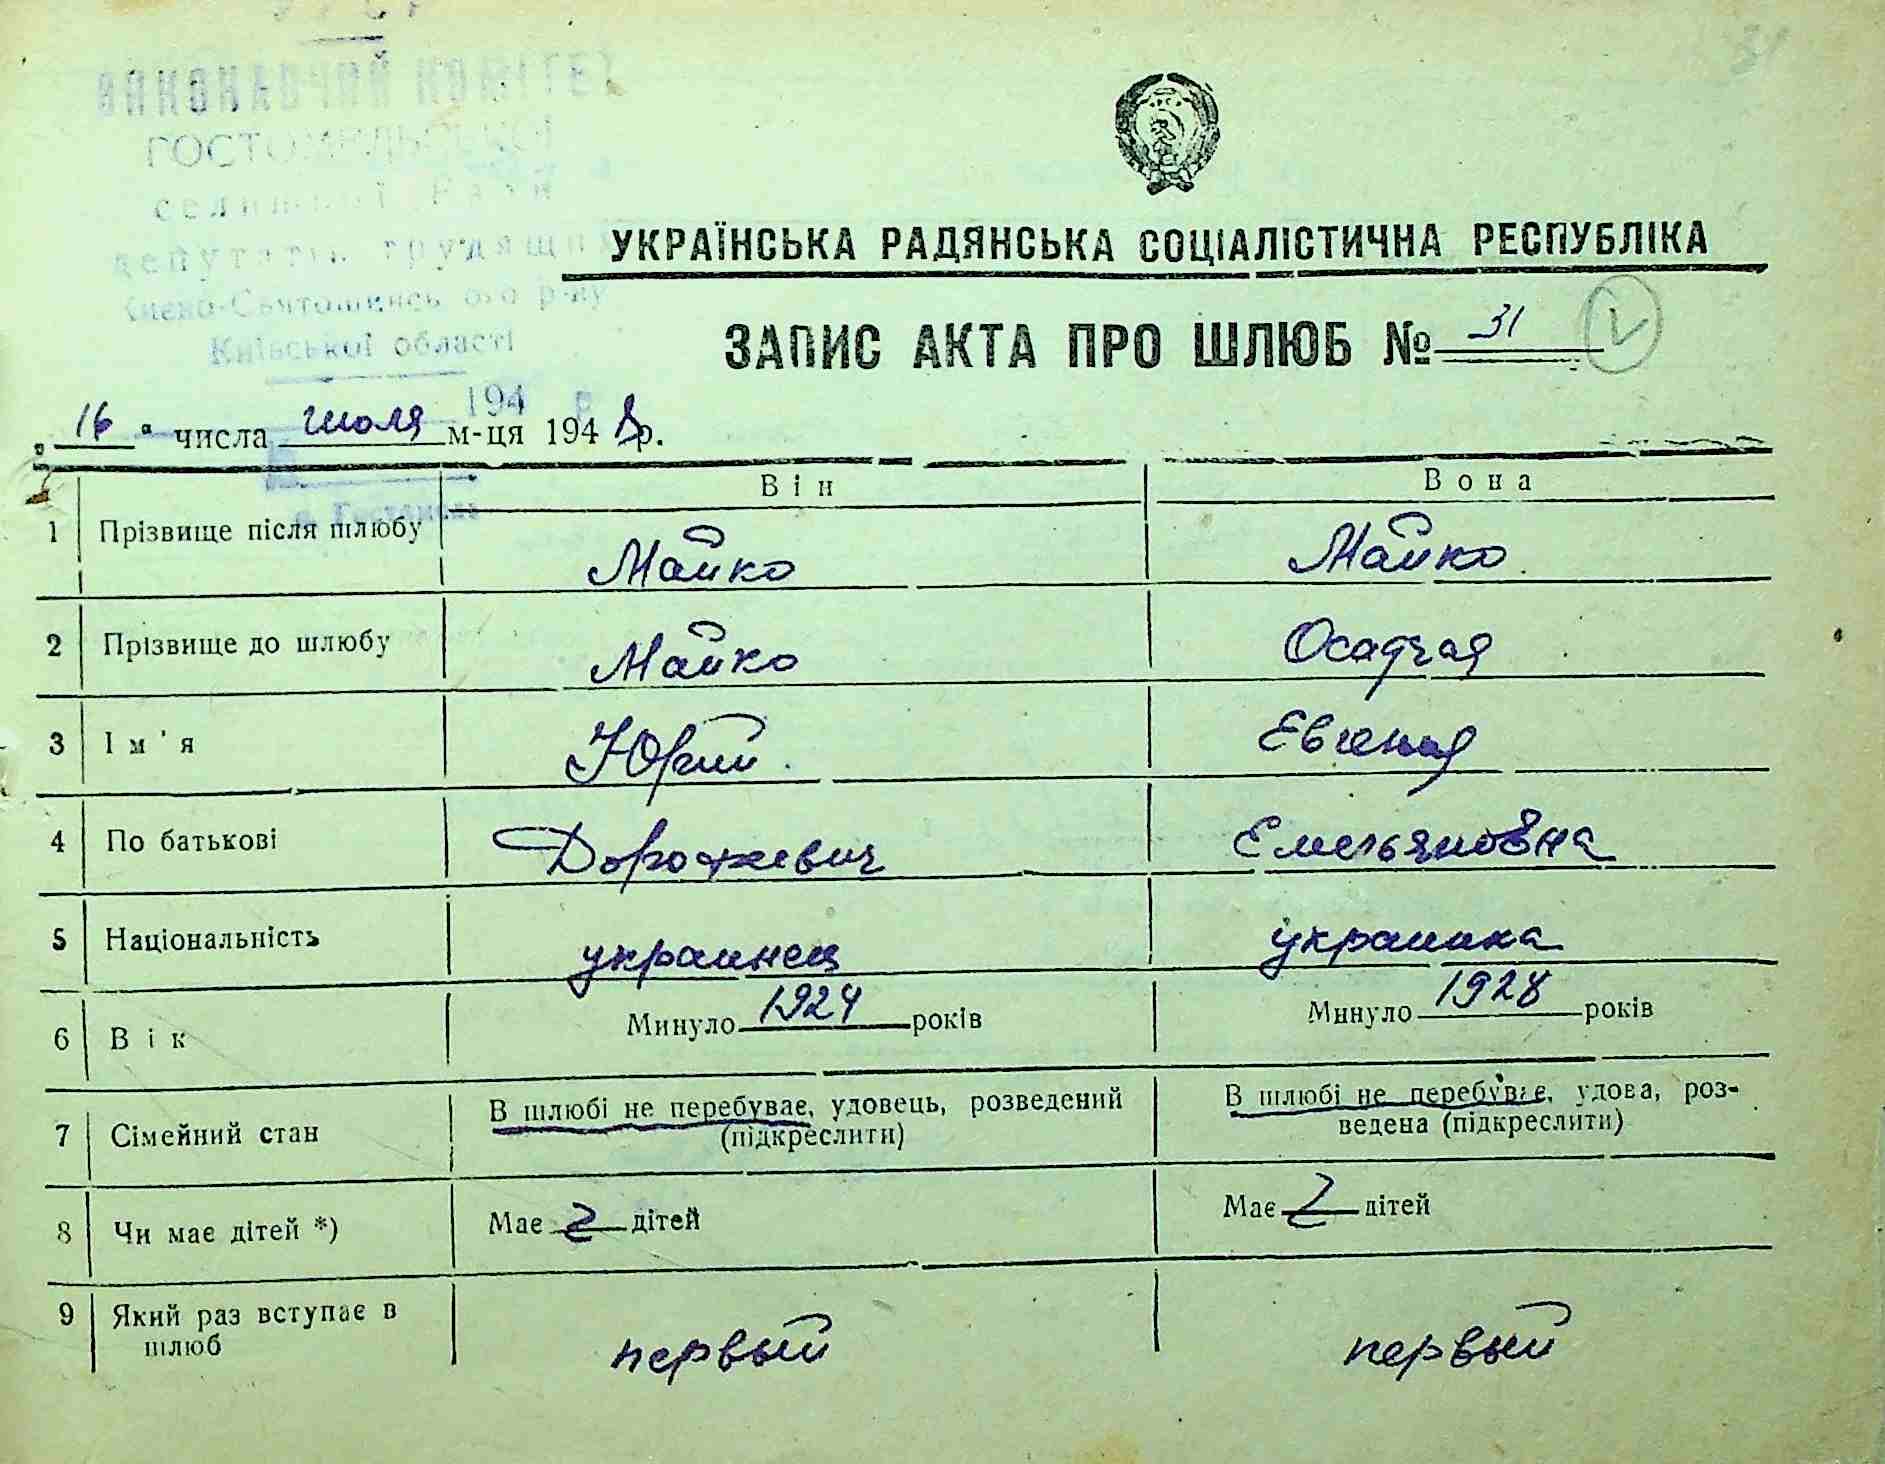 УРСР
ВИКОНАВЧИЙ КОМІТЕТ
ГОСТОМЕЛЬСЬКОЇ
селищної Ради
депутатів трудящих
Києво-Святошинського р-ну
Київської області
194 р
31
УКРАЇНСЬКА РАДЯНСЬКА СОЦІАЛІСТИЧНА РЕСПУБЛІКА
ЗАПИС АКТА ПРО ШЛЮБ № 31
„16“ числа июля м-ця 1948 р.
Він Вона
1 Прізвище після шлюбу Майко Майко
2 Прізвище до шлюбу Майко Осадчая
3 Ім'я Юрий Евгения
4 По батькові Дорофеевич Емельяновна
5 Національність украинец украинка
6 Вік Минуло 1924 років Минуло 1928 років
7 Сімейний стан В шлюбі не перебуває, удовець, розведений (підкреслити) В шлюбі не перебуває, удова, роз-
ведена (підкреслити)
8 Чи має дітей *) Має 2 дітей Має 2 дітей
9 Який раз вступає в шлюб первый первый